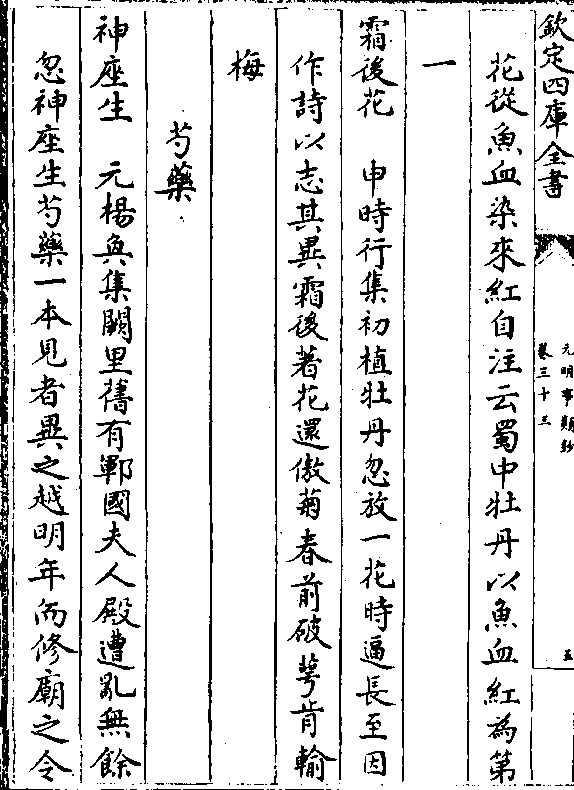 欽定四庫全書
元明事類鈔
卷三十三
五
花從魚血染來紅自注云蜀中牡丹以魚血紅為第
一
霜後花　申時行集初植牡丹忽放一花時逼長至因
作詩以志其異霜後著花還傲菊春前破萼肯輸
梅
芍藥
神座生　元楊奐集闕里舊有鄆國夫人殿遭亂無餘
忽神座生芍藥一本見者異之越明年而修廟之令